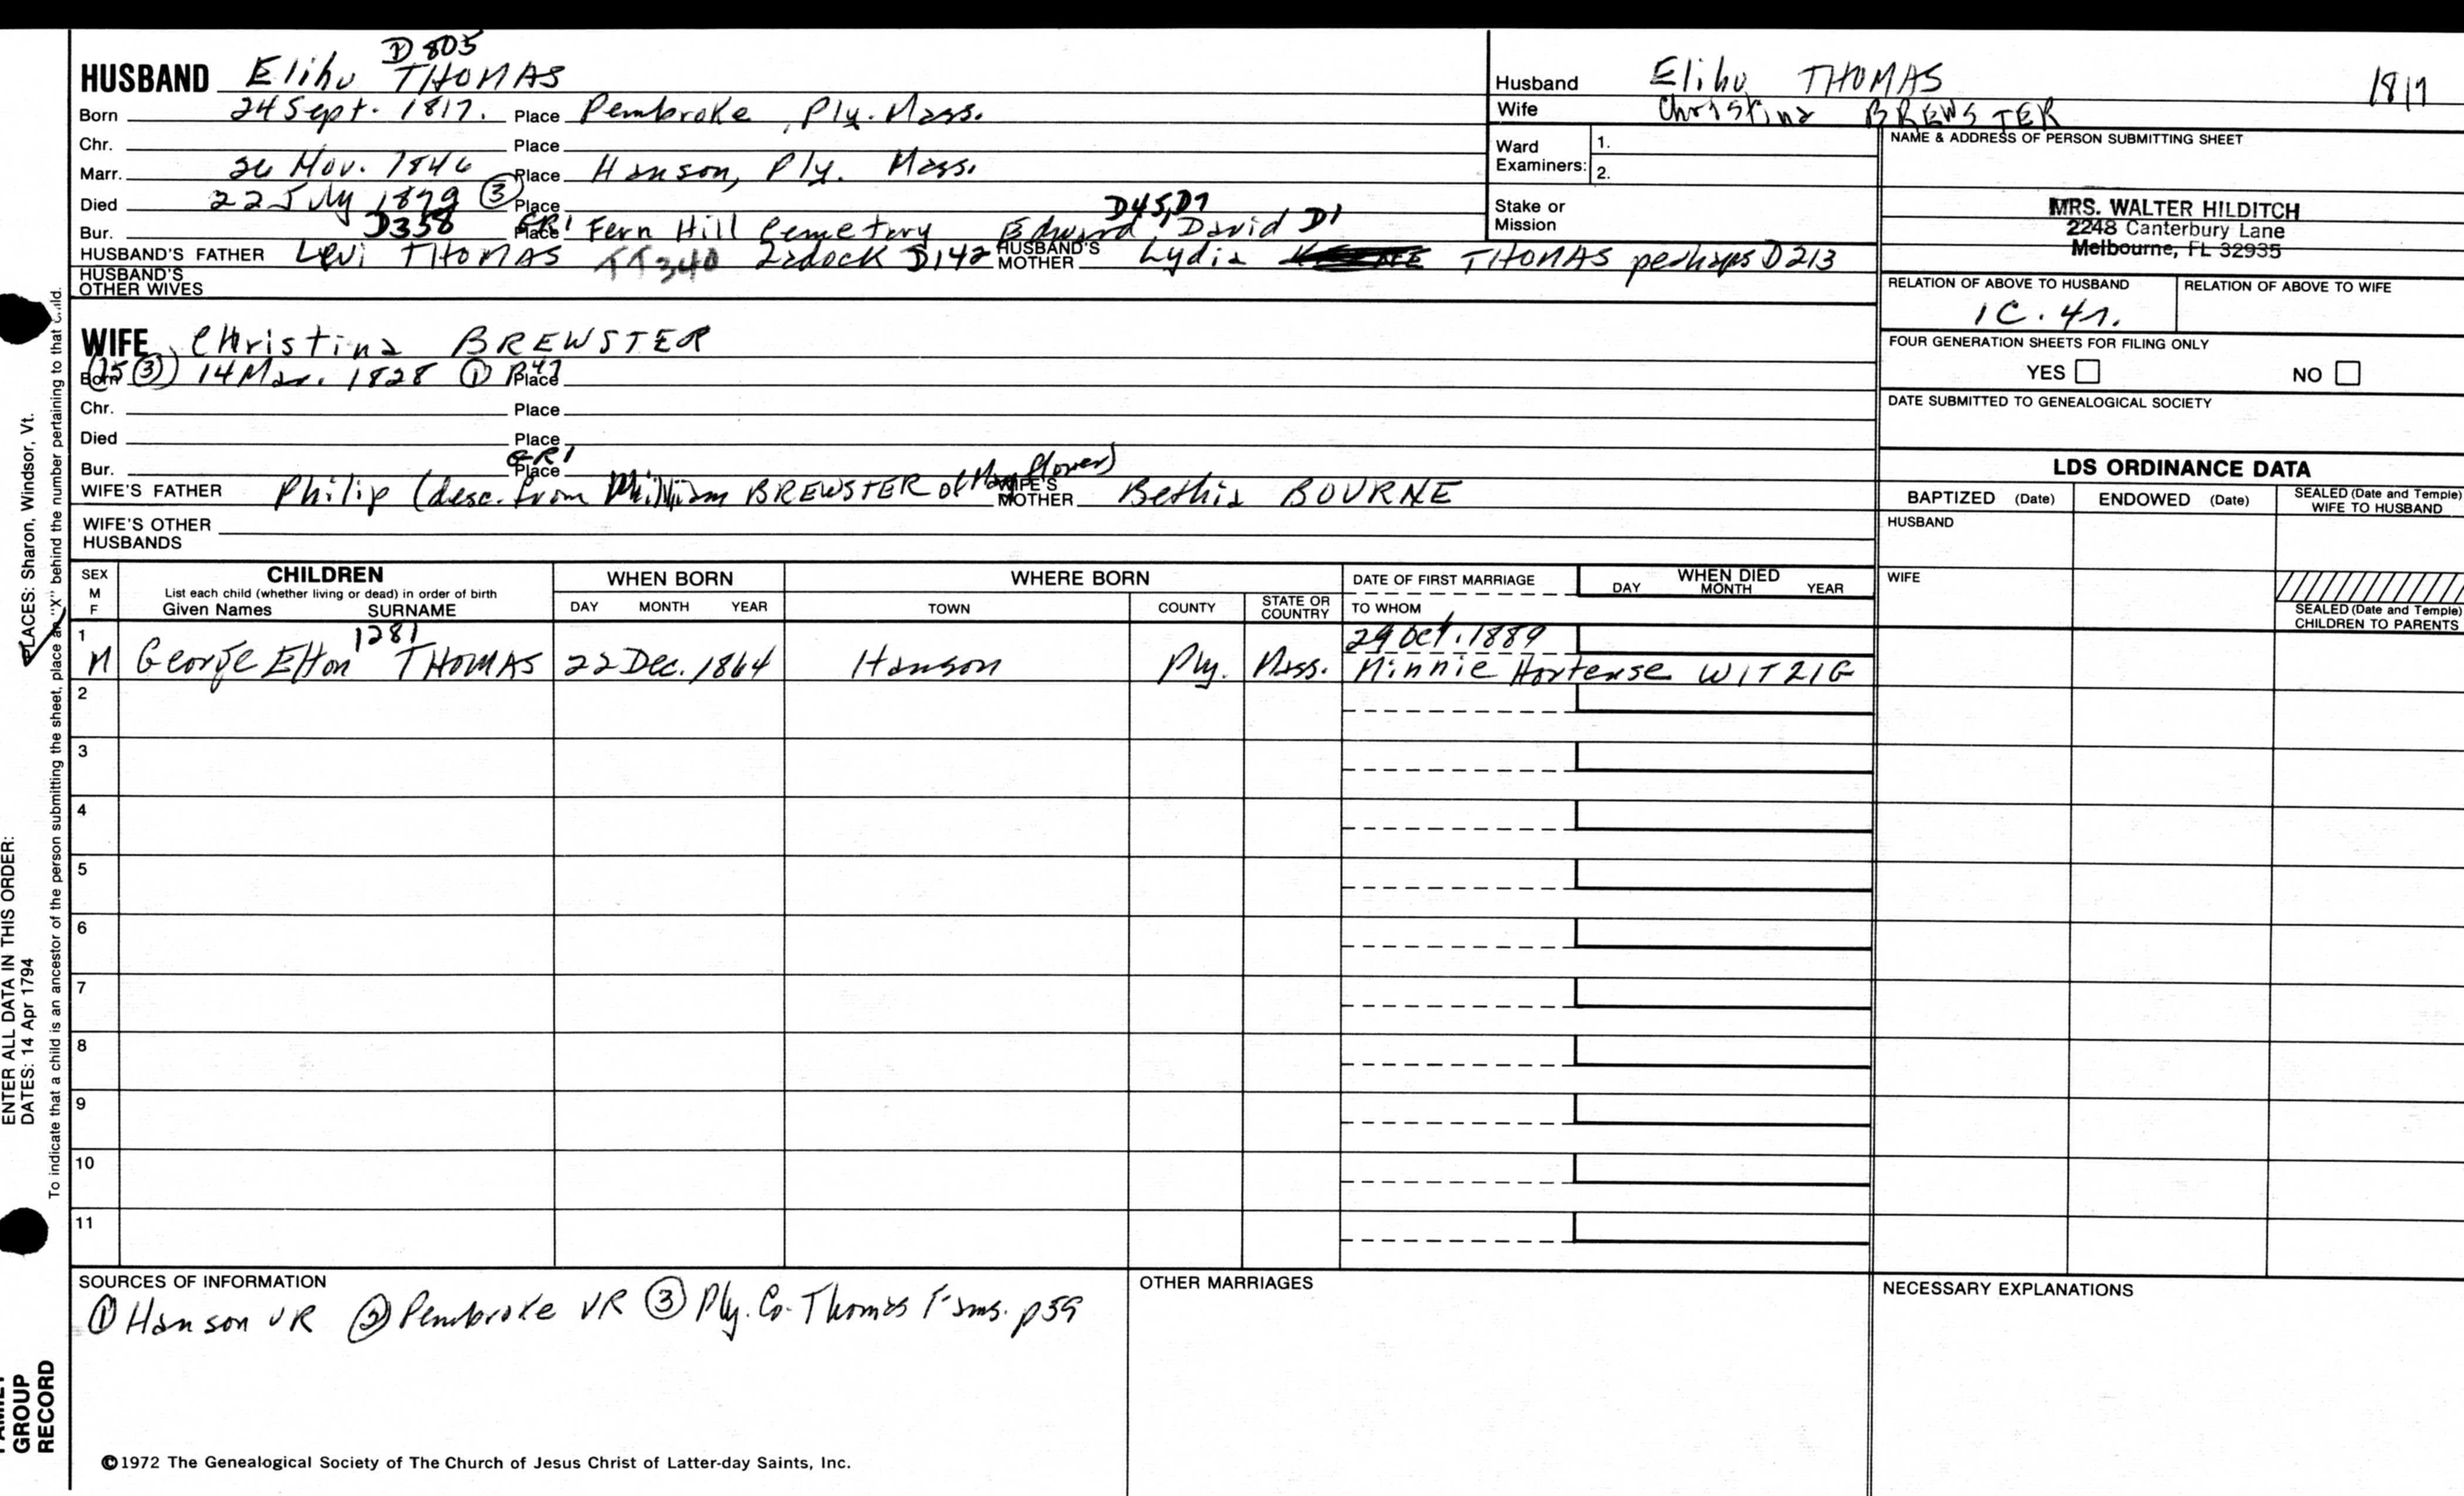 D 805
HUSBAND Elihu THOMAS
Born 24 Sept. 1817. Place Pembroke, Ply. Mass.
Chr. Place
Marr. 26 Nov. 1846 Place Hanson, Ply. Mass.
Died 22 July 1879 ③ Place D45, D7
Bur. D358 Place GR1 Fern Hill Cemetery Edward, David D1
HUSBAND'S FATHER Levi THOMAS TT340 Zadock D142 HUSBAND'S MOTHER Lydia THOMAS perhaps D213
HUSBAND'S OTHER WIVES
WIFE Christina BREWSTER
Born (15 ③) 14 Mar. 1828 ① P47 Place
Chr. Place
Died Place
Bur. Place GR1
WIFE'S FATHER Philip (desc. from William BREWSTER of Mayflower) WIFE'S MOTHER Bethia BOURNE
WIFE'S OTHER HUSBANDS
Husband Elihu THOMAS 1817
Wife Christina BREWSTER
Ward Examiners: 1.
2.
Stake or Mission
NAME & ADDRESS OF PERSON SUBMITTING SHEET
MRS. WALTER HILDITCH
2248 Canterbury Lane
Melbourne, FL 32935
RELATION OF ABOVE TO HUSBAND RELATION OF ABOVE TO WIFE
1C. 4r.
FOUR GENERATION SHEETS FOR FILING ONLY
YES NO
DATE SUBMITTED TO GENEALOGICAL SOCIETY
LDS ORDINANCE DATA
BAPTIZED (Date) ENDOWED (Date) SEALED (Date and Temple) WIFE TO HUSBAND
HUSBAND
WIFE
SEALED (Date and Temple) CHILDREN TO PARENTS
SEX M F
CHILDREN
List each child (whether living or dead) in order of birth
Given Names SURNAME
WHEN BORN
DAY MONTH YEAR
WHERE BORN
TOWN COUNTY STATE OR COUNTRY
DATE OF FIRST MARRIAGE
TO WHOM
WHEN DIED
DAY MONTH YEAR
1 1281 29 Oct. 1889
M George Elton THOMAS 22 Dec. 1864 Hanson Ply. Mass. Minnie Hortense WITZIG
2
3
4
5
6
7
8
9
10
11
SOURCES OF INFORMATION
① Hanson VR ② Pembroke VR ③ Ply. Co. Thomas Fams. p59
OTHER MARRIAGES
NECESSARY EXPLANATIONS
©1972 The Genealogical Society of The Church of Jesus Christ of Latter-day Saints, Inc.
ENTER ALL DATA IN THIS ORDER:
DATES: 14 Apr 1794
PLACES: Sharon, Windsor, Vt.
To indicate that a child is an ancestor of the person submitting the sheet, place an "X" behind the number pertaining to that child.
FAMILY
GROUP
RECORD